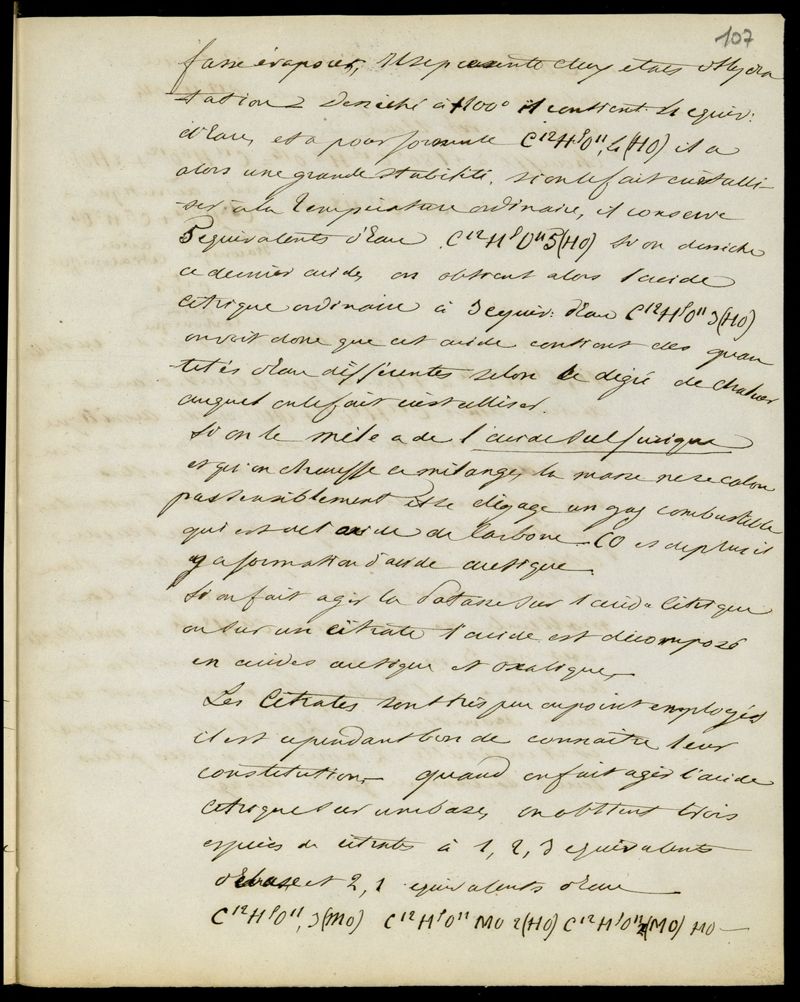 107
fasse évaporer, Il se présente deux etats d'hydra
tation Desséché à +100° il contient 4 equiv:
d'Eau, et a pour formule C¹²H⁵O¹¹, 4(HO) il a
alors une grande stabilité. Si on le fait cristalli-
ser à la Température ordinaire, il conserve
5 equivalents d'Eau C¹²H⁵O¹¹5(HO) Si on dessèche
ce dernier acide, on obtient alors l'acide
citrique ordinaire à 3 equiv: d'Eau C¹²H⁵O¹¹3(HO)
on voit donc que cet acide contient des quan
tités d'Eau différentes selon le degré de chaleur
auquel on le fait cristalliser.
Si on le mêle a de l'acide Sulfurique
et qu'on chauffe ce mélange, la masse ne se colore
pas sensiblement il se dégage un gaz combustible
qui est de l'oxide de Carbone CO et de plus il
y a formation d'acide acétique
Si on fait agir la Potasse sur l'acide Citrique
ou sur un citrate l'acide est décomposé
en acides acétique et oxalique,
Les Citrates sont très peu ou point employés
il est cependant bon de connaître leur
constitution quand on fait agir l'acide
citrique sur une base, on obtient trois
espèces de citrates à 1, 2, 3 equivalents
de base et 2, 1 equivalents d'Eau
C¹²H⁵O¹¹, 3(MO) C¹²H⁵O¹¹ MO 2(HO) C¹²H⁵O¹¹2(MO) HO